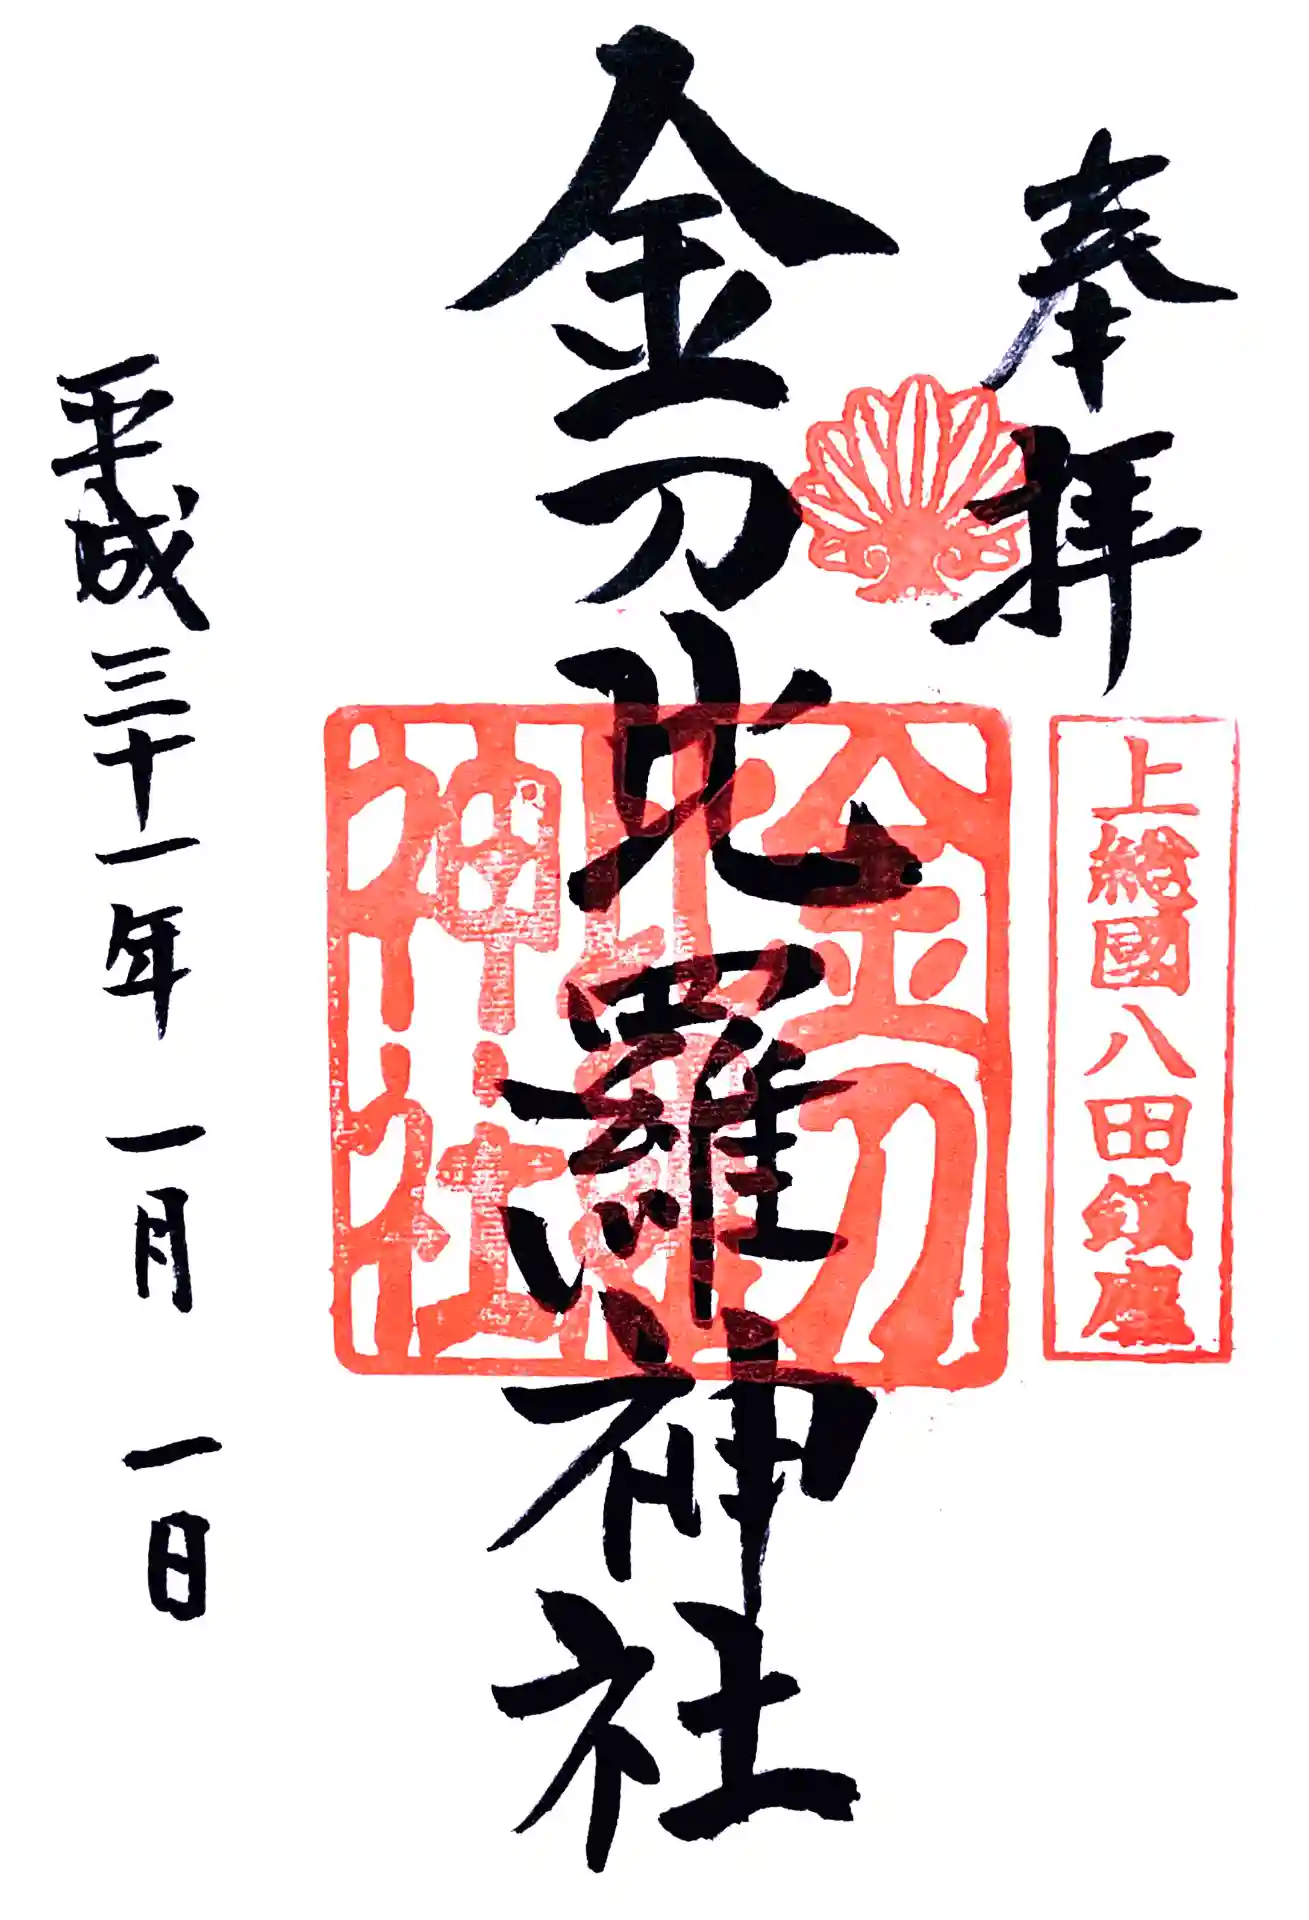 奉拝
上総國八田鎮座
金刀比羅神社
金刀比羅神社
平成三十一年 一月 一日